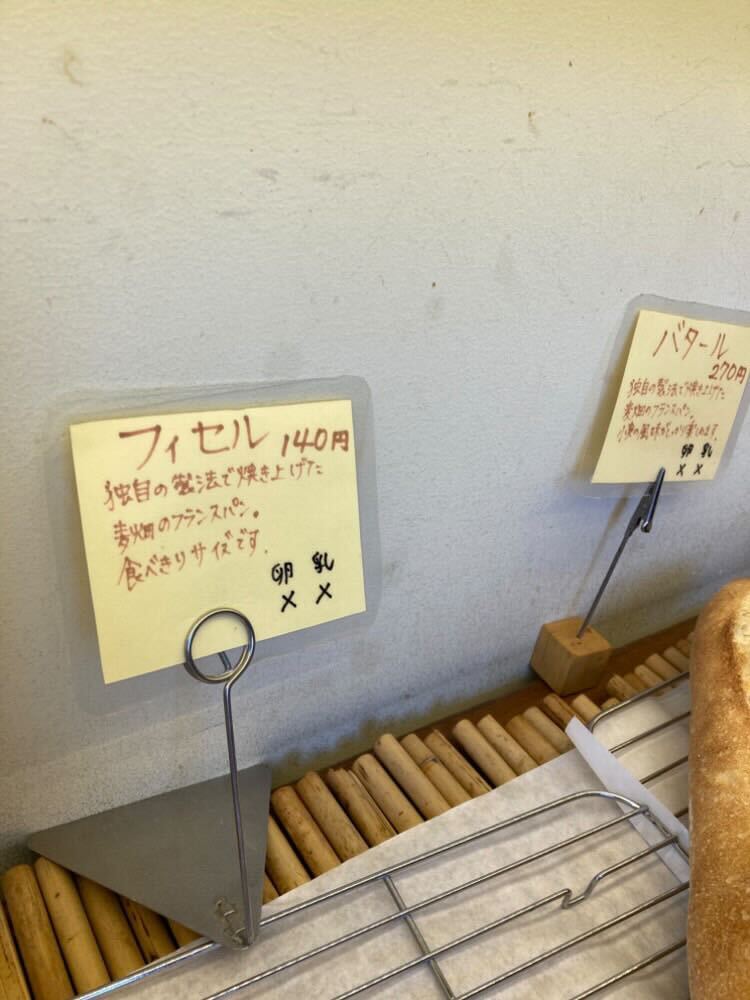 フィセル 140円
独自の製法で焼き上げた
麦畑のフランスパン。
食べきりサイズです。
卵 乳
× ×
バタール
270円
独自の製法で焼き上げた
麦畑のフランスパン。
小麦の風味がしっかり楽しめます。
卵 乳
× ×